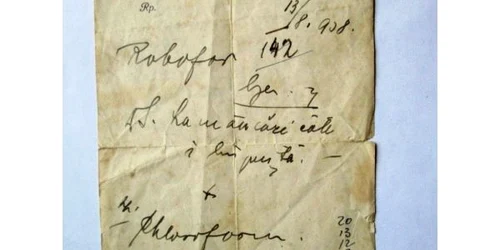 Rp.
13/8. 908.
Robofor
142
DS. La mâncări câte
1 linguriță. —
+
Rp. Chloroform.
20
13
12